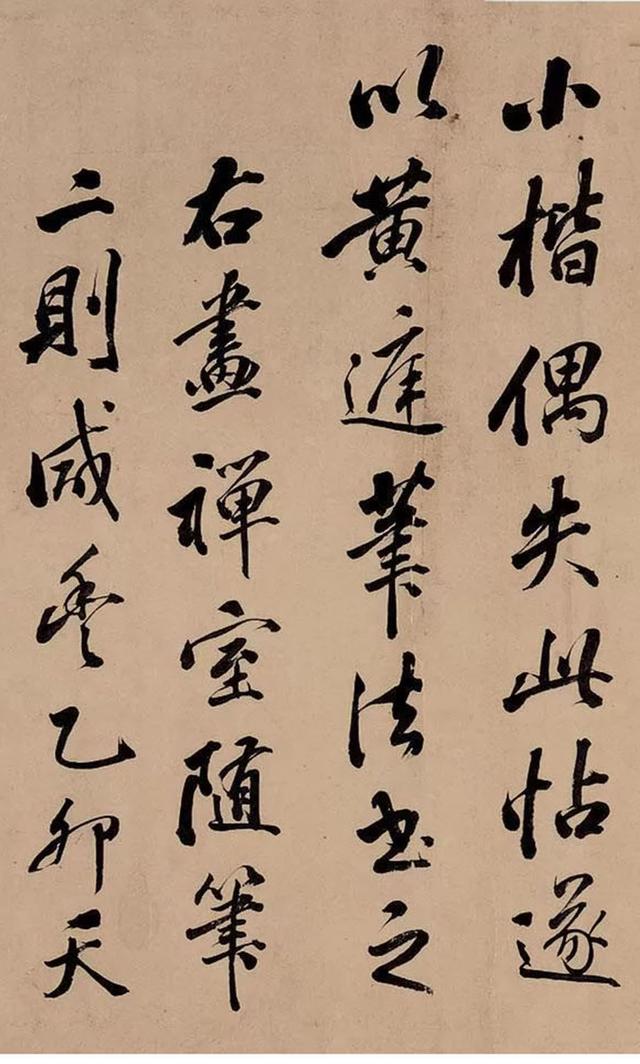 小楷偶失此帖遂
以黃庭筆法書之
右畫禪室随筆
二則咸豐乙卯天